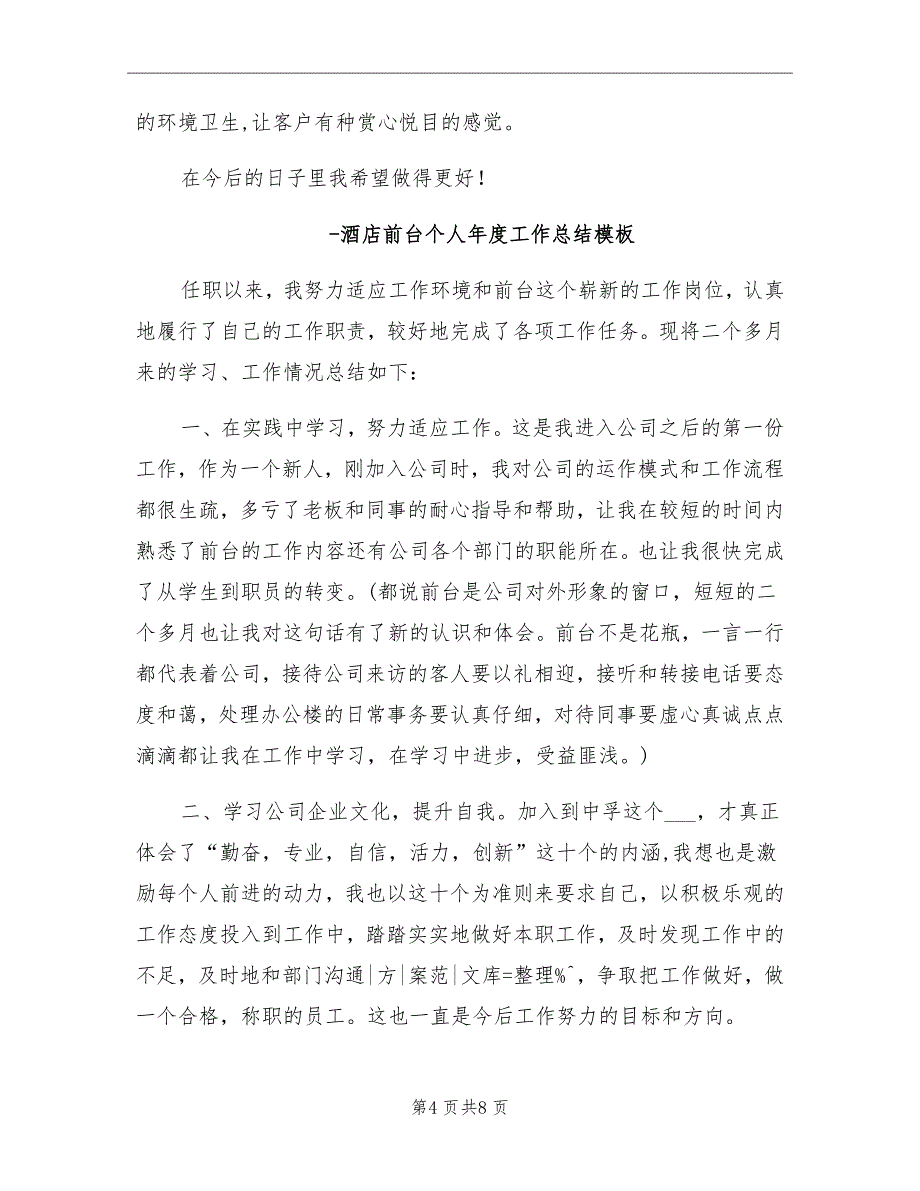 的环境卫生,让客户有种赏心悦目的感觉。
在今后的日子里我希望做得更好！
-酒店前台个人年度工作总结模板
任职以来，我努力适应工作环境和前台这个崭新的工作岗位，认真
地履行了自己的工作职责，较好地完成了各项工作任务。现将二个多月
来的学习、工作情况总结如下：
一、在实践中学习，努力适应工作。这是我进入公司之后的第一份
工作，作为一个新人，刚加入公司时，我对公司的运作模式和工作流程
都很生疏，多亏了老板和同事的耐心指导和帮助，让我在较短的时间内
熟悉了前台的工作内容还有公司各个部门的职能所在。也让我很快完成
了从学生到职员的转变。(都说前台是公司对外形象的窗口，短短的二
个多月也让我对这句话有了新的认识和体会。前台不是花瓶，一言一行
都代表着公司，接待公司来访的客人要以礼相迎，接听和转接电话要态
度和蔼，处理办公楼的日常事务要认真仔细，对待同事要虚心真诚点点
滴滴都让我在工作中学习，在学习中进步，受益匪浅。)
二、学习公司企业文化，提升自我。加入到中孚这个___，才真正
体会了“勤奋，专业，自信，活力，创新”这十个的内涵,我想也是激
励每个人前进的动力，我也以这十个为准则来要求自己，以积极乐观的
工作态度投入到工作中，踏踏实实地做好本职工作，及时发现工作中的
不足，及时地和部门沟通|方|案范|文库=整理%^，争取把工作做好，做
一个合格，称职的员工。这也一直是今后工作努力的目标和方向。
第4 页共8 页